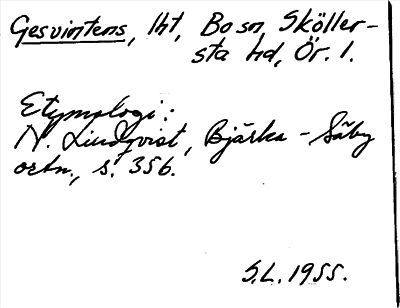 Gesvintens, lht, Bo sn, Sköller-
sta hd, Ör. l.
Etymologi:
N. Lindqvist, Bjärka-Säby
ortn., s. 356.
S.L. 1955.